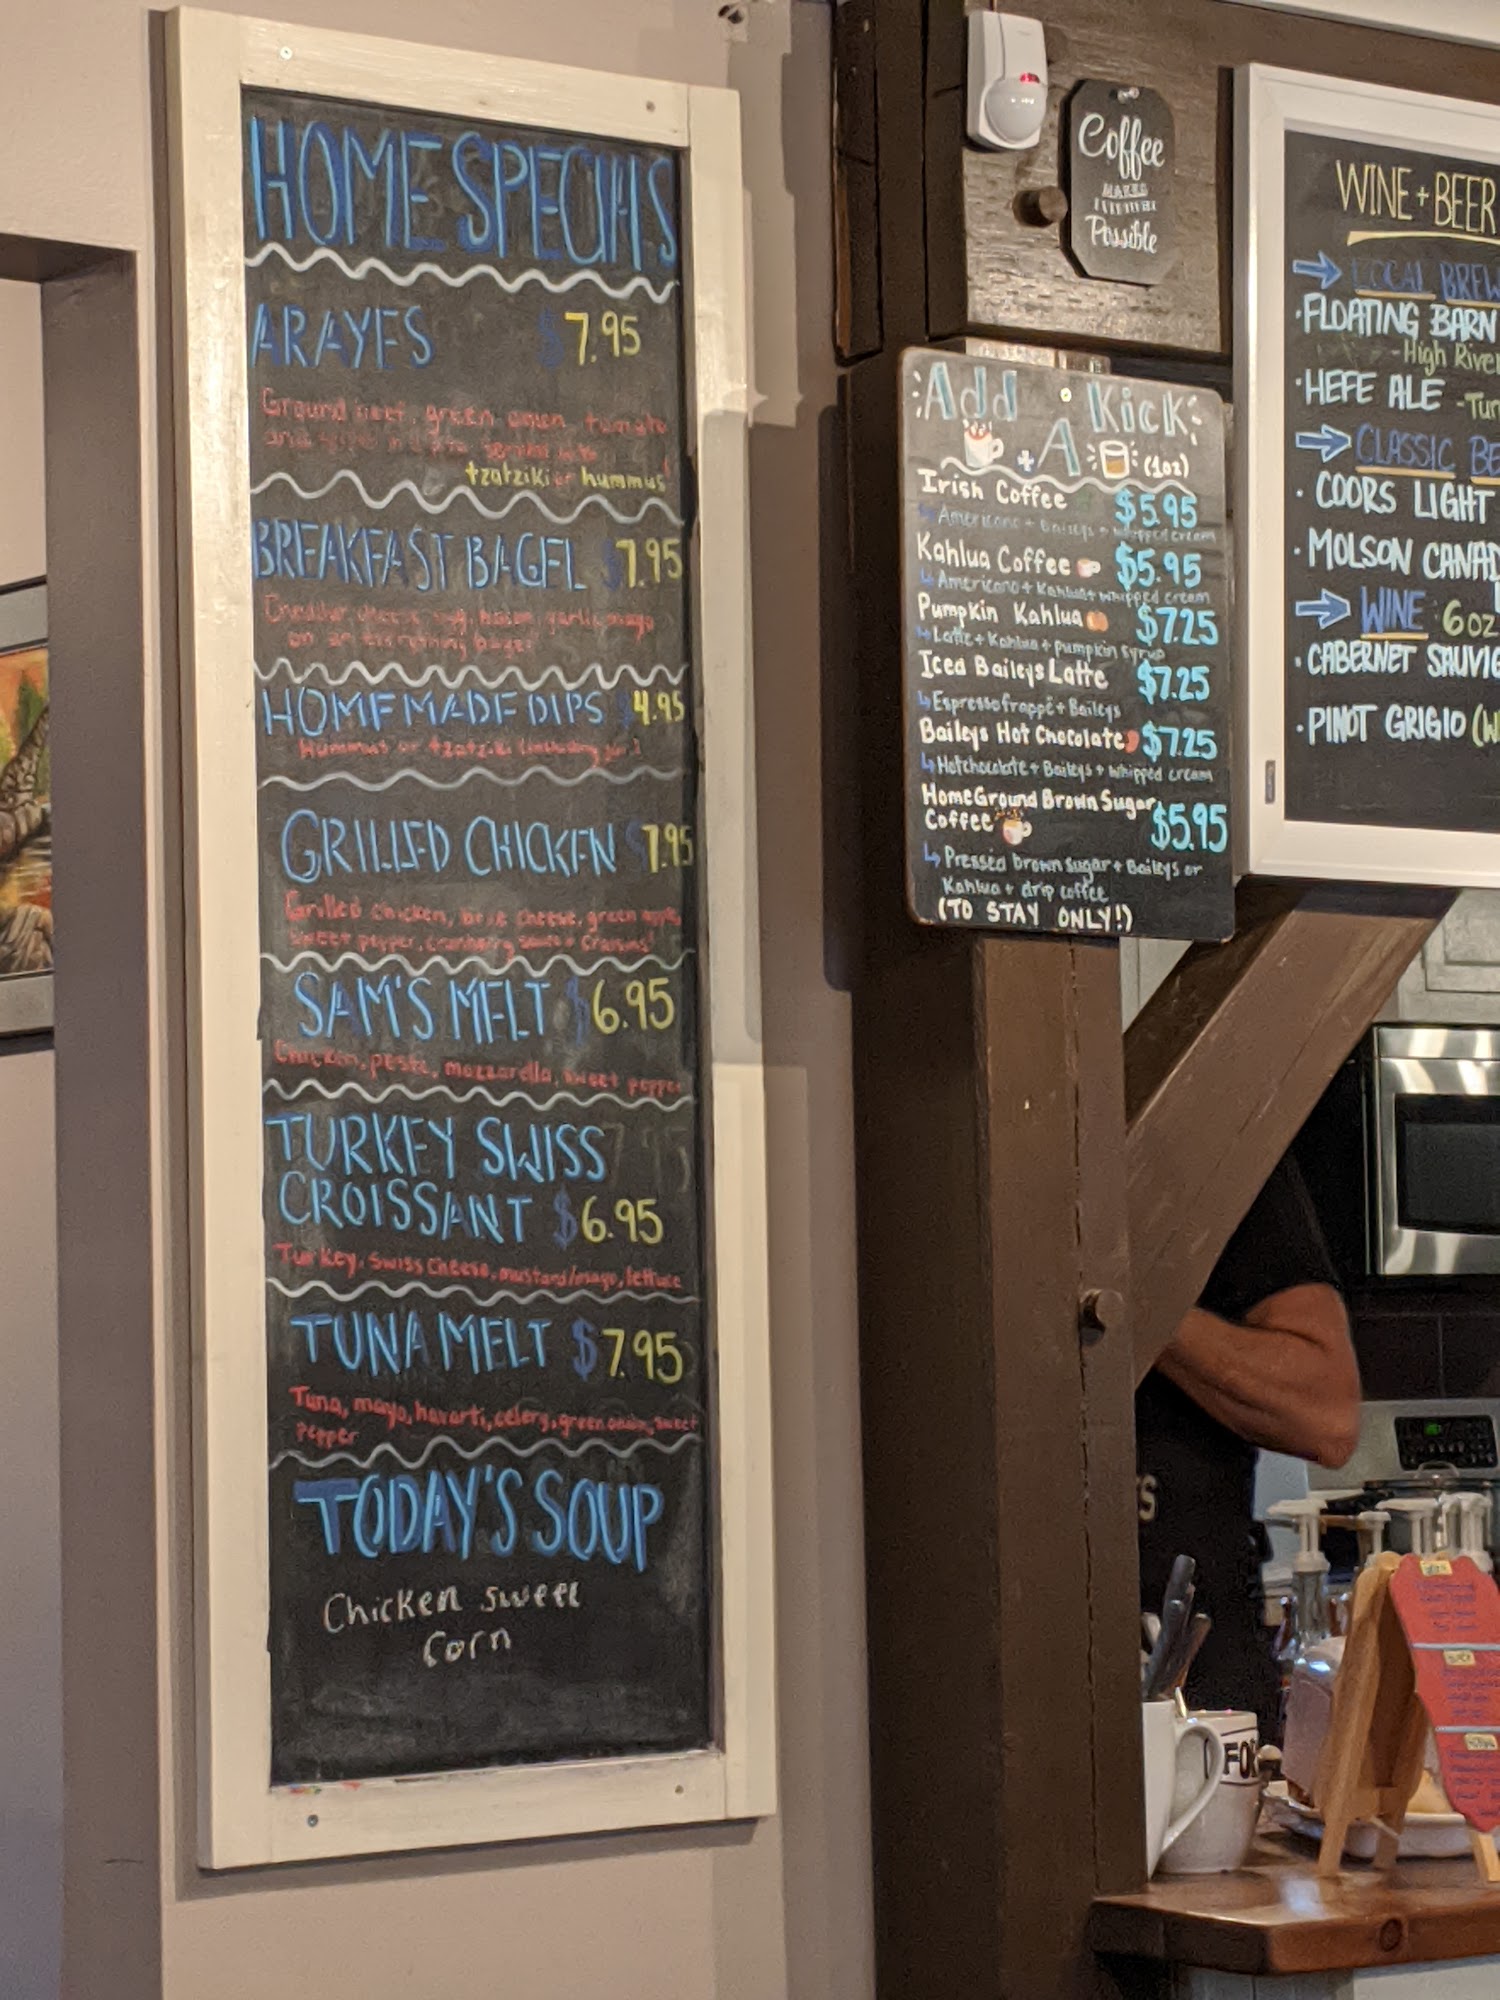 HOME SPECIALS
ARAYES $7.95
Ground beef, green onion, tomato
and served with
tzatziki or hummus!
BREAKFAST BAGEL $7.95
Cheddar cheese, egg, bacon, garlic mayo
on an everything bagel
HOMEMADE DIPS $4.95
Hummus or tzatziki (including
GRILLED CHICKEN $7.95
Grilled chicken, brie cheese, green apple,
sweet pepper, cranberry sauce + Craisins!
SAM'S MELT $6.95
Chicken, pesto, mozzarella, sweet pepper
TURKEY SWISS
CROISSANT $6.95
Turkey, swiss cheese, mustard/mayo, lettuce
TUNA MELT $7.95
Tuna, mayo, havarti, celery, green onion, sweet
pepper
TODAY'S SOUP
Chicken sweet
Corn
Coffee
MAKES
EVERYTHING
Possible
Add A Kick
(1oz)
Irish Coffee $5.95
Americano + Baileys + whipped cream
Kahlua Coffee $5.95
Americano + Kahlua + whipped cream
Pumpkin Kahlua $7.25
Latte + Kahlua + pumpkin syrup
Iced Baileys Latte $7.25
Espresso frappé + Baileys
Baileys Hot Chocolate $7.25
Hotchocolate + Baileys + whipped cream
HomeGround Brown Sugar
Coffee $5.95
Pressed brown sugar + Baileys or
Kahlua + drip coffee
(TO STAY ONLY!)
WINE + BEER
LOCAL BREW
·FLOATING BARN
-High River
·HEFE ALE -Tur
CLASSIC BE
· COORS LIGHT
· MOLSON CANAD
WINE 6oz
·CABERNET SAUVIG
·PINOT GRIGIO (W